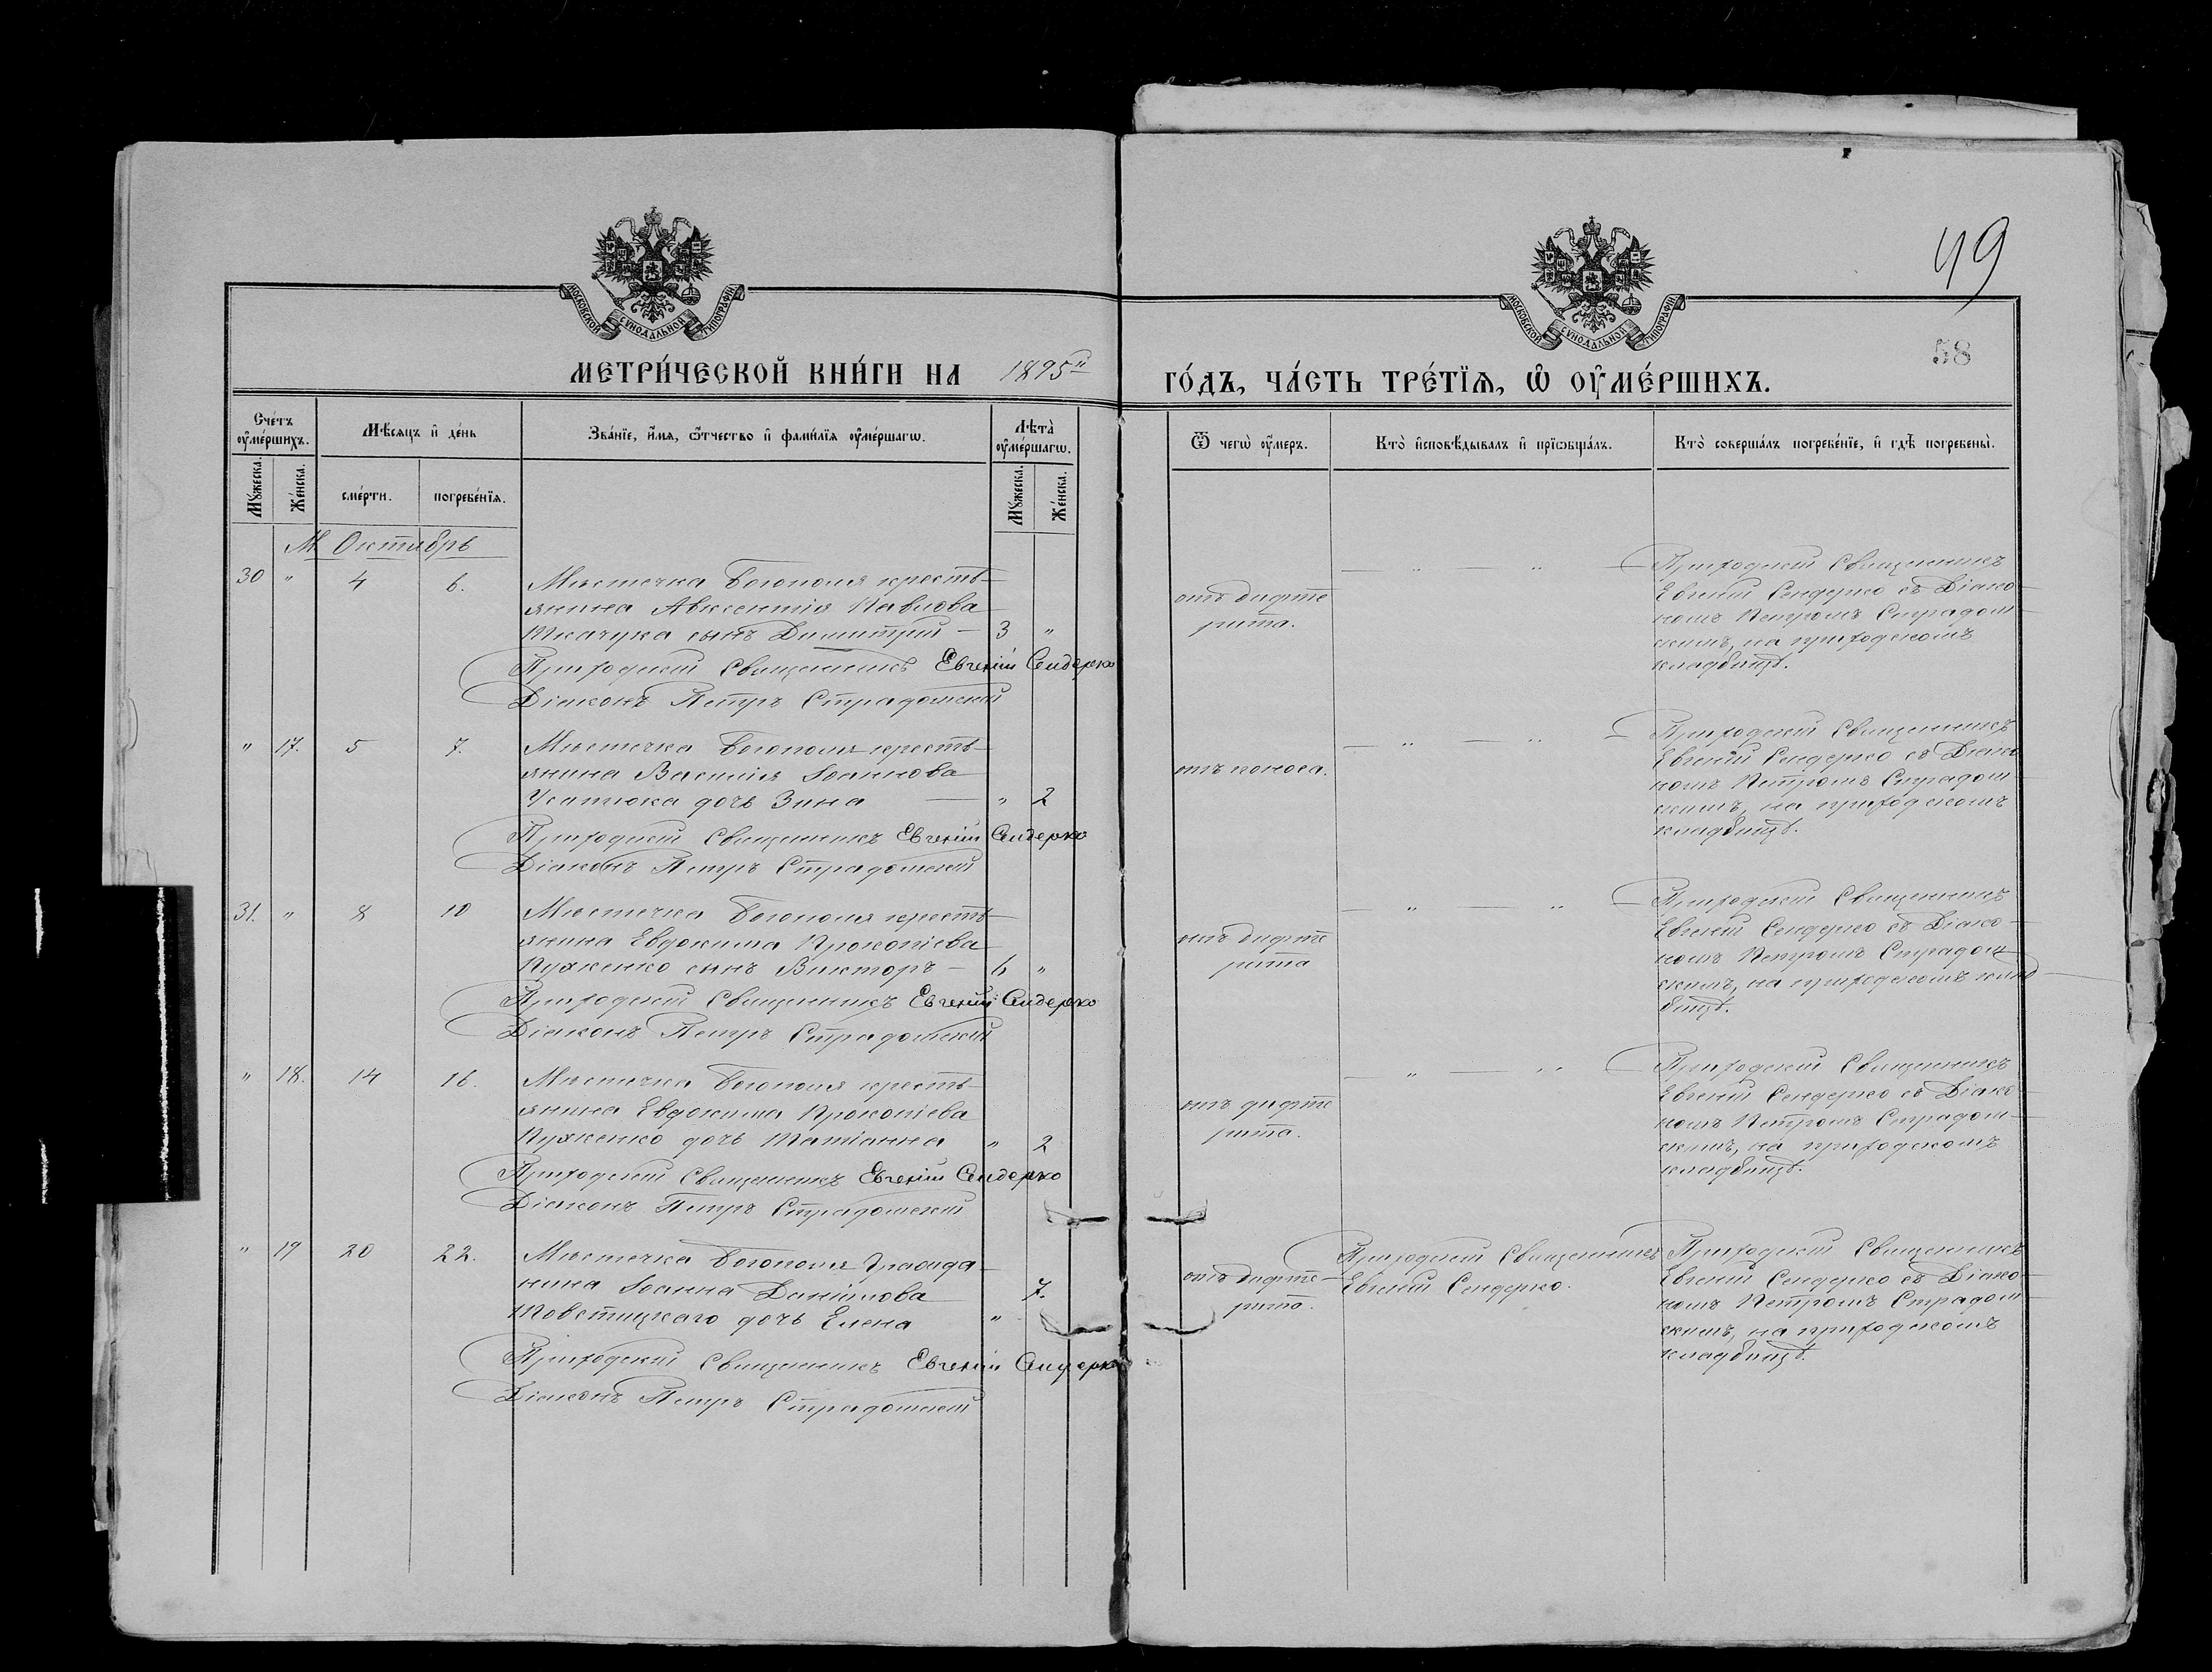 49
58
МОСКОВСКОЙ СѴНОДАЛЬНОЙ ТИПОГРАФІИ
МОСКОВСКОЙ СѴНОДАЛЬНОЙ ТИПОГРАФІИ
МЕТРИ́ЧЕСКОЙ КНИ́ГИ НА 1895й ГО́ДЪ, ЧА́СТЬ ТРЕ́ТЇѦ, Ѡ ОУМЕ́РШИХЪ.
Сче́тъ оуме́ршихъ.
Мꙋ́жеска.
Же́нска.
Мѣ́сѧцъ и де́нь
сме́рти.
погребе́нїѧ.
Зва́нїе, и́мѧ, ѻ́тчество и фами́лїѧ оуме́ршагѡ.
Лѣта̀ оуме́ршагѡ.
Мꙋ́жеска.
Же́нска.
Ѿ чегѡ̀ оу́меръ.
Кто̀ исповѣ́дывалъ и прїѡбща́лъ.
Кто̀ соверша́лъ погребе́нїе, и гдѣ̀ погребены̀.
М. Октябрь
30 " 4 6.
Мѣстечка Богополя кресть-
янина Авксентія Павлова
Ткачука сынъ Димитрій — 3 "
Приходскій Священникъ Евгеній Сендерко
Діаконъ Петръ Страдомскій
отъ дифте
рита.
— " — " —
Приходскій Священникъ
Евгеній Сендерко съ Діако-
номъ Петромъ Страдом-
скимъ, на приходскомъ
кладбищѣ.
" 17. 5 7.
Мѣстечка Богополя кресть-
янина Василія Іоаннова
Усатюка дочь Зина — " 2
Приходскій Священникъ Евгеній Сендерко
Діаконъ Петръ Страдомскій
отъ поноса.
— " — " —
Приходскій Священникъ
Евгеній Сендерко съ Діако-
номъ Петромъ Страдом-
скимъ, на приходскомъ
кладбищѣ.
31. " 8 10
Мѣстечка Богополя кресть-
янина Евдокима Прокопіева
Пухкенко сынъ Викторъ — 6 "
Приходскій Священникъ Евгеній Сендерко
Діаконъ Петръ Страдомскій
отъ дифте
рита
— " — " —
Приходскій Священникъ
Евгеній Сендерко съ Діако-
номъ Петромъ Страдом-
скимъ, на приходскомъ клад-
бищѣ.
" 18. 14 16.
Мѣстечка Богополя кресть-
янина Евдокима Прокопіева
Пухкенко дочь Татіанна " 2
Приходскій Священникъ Евгеній Сендерко
Діаконъ Петръ Страдомскій
отъ дифте
рита.
— " — " —
Приходскій Священникъ
Евгеній Сендерко съ Діако-
номъ Петромъ Страдом-
скимъ, на приходскомъ
кладбищѣ.
" 19 20 22.
Мѣстечка Богополя Гражда-
нина Іоанна Даніилова
Товстицкаго дочь Елена " 7.
Приходскій Священникъ Евгеній Сендерко
Діаконъ Петръ Страдомскій
отъ дифте-
рита.
Приходскій Священникъ
Евгеній Сендерко.
Приходскій Священникъ
Евгеній Сендерко съ Діако-
номъ Петромъ Страдом-
скимъ, на приходскомъ
кладбищѣ.